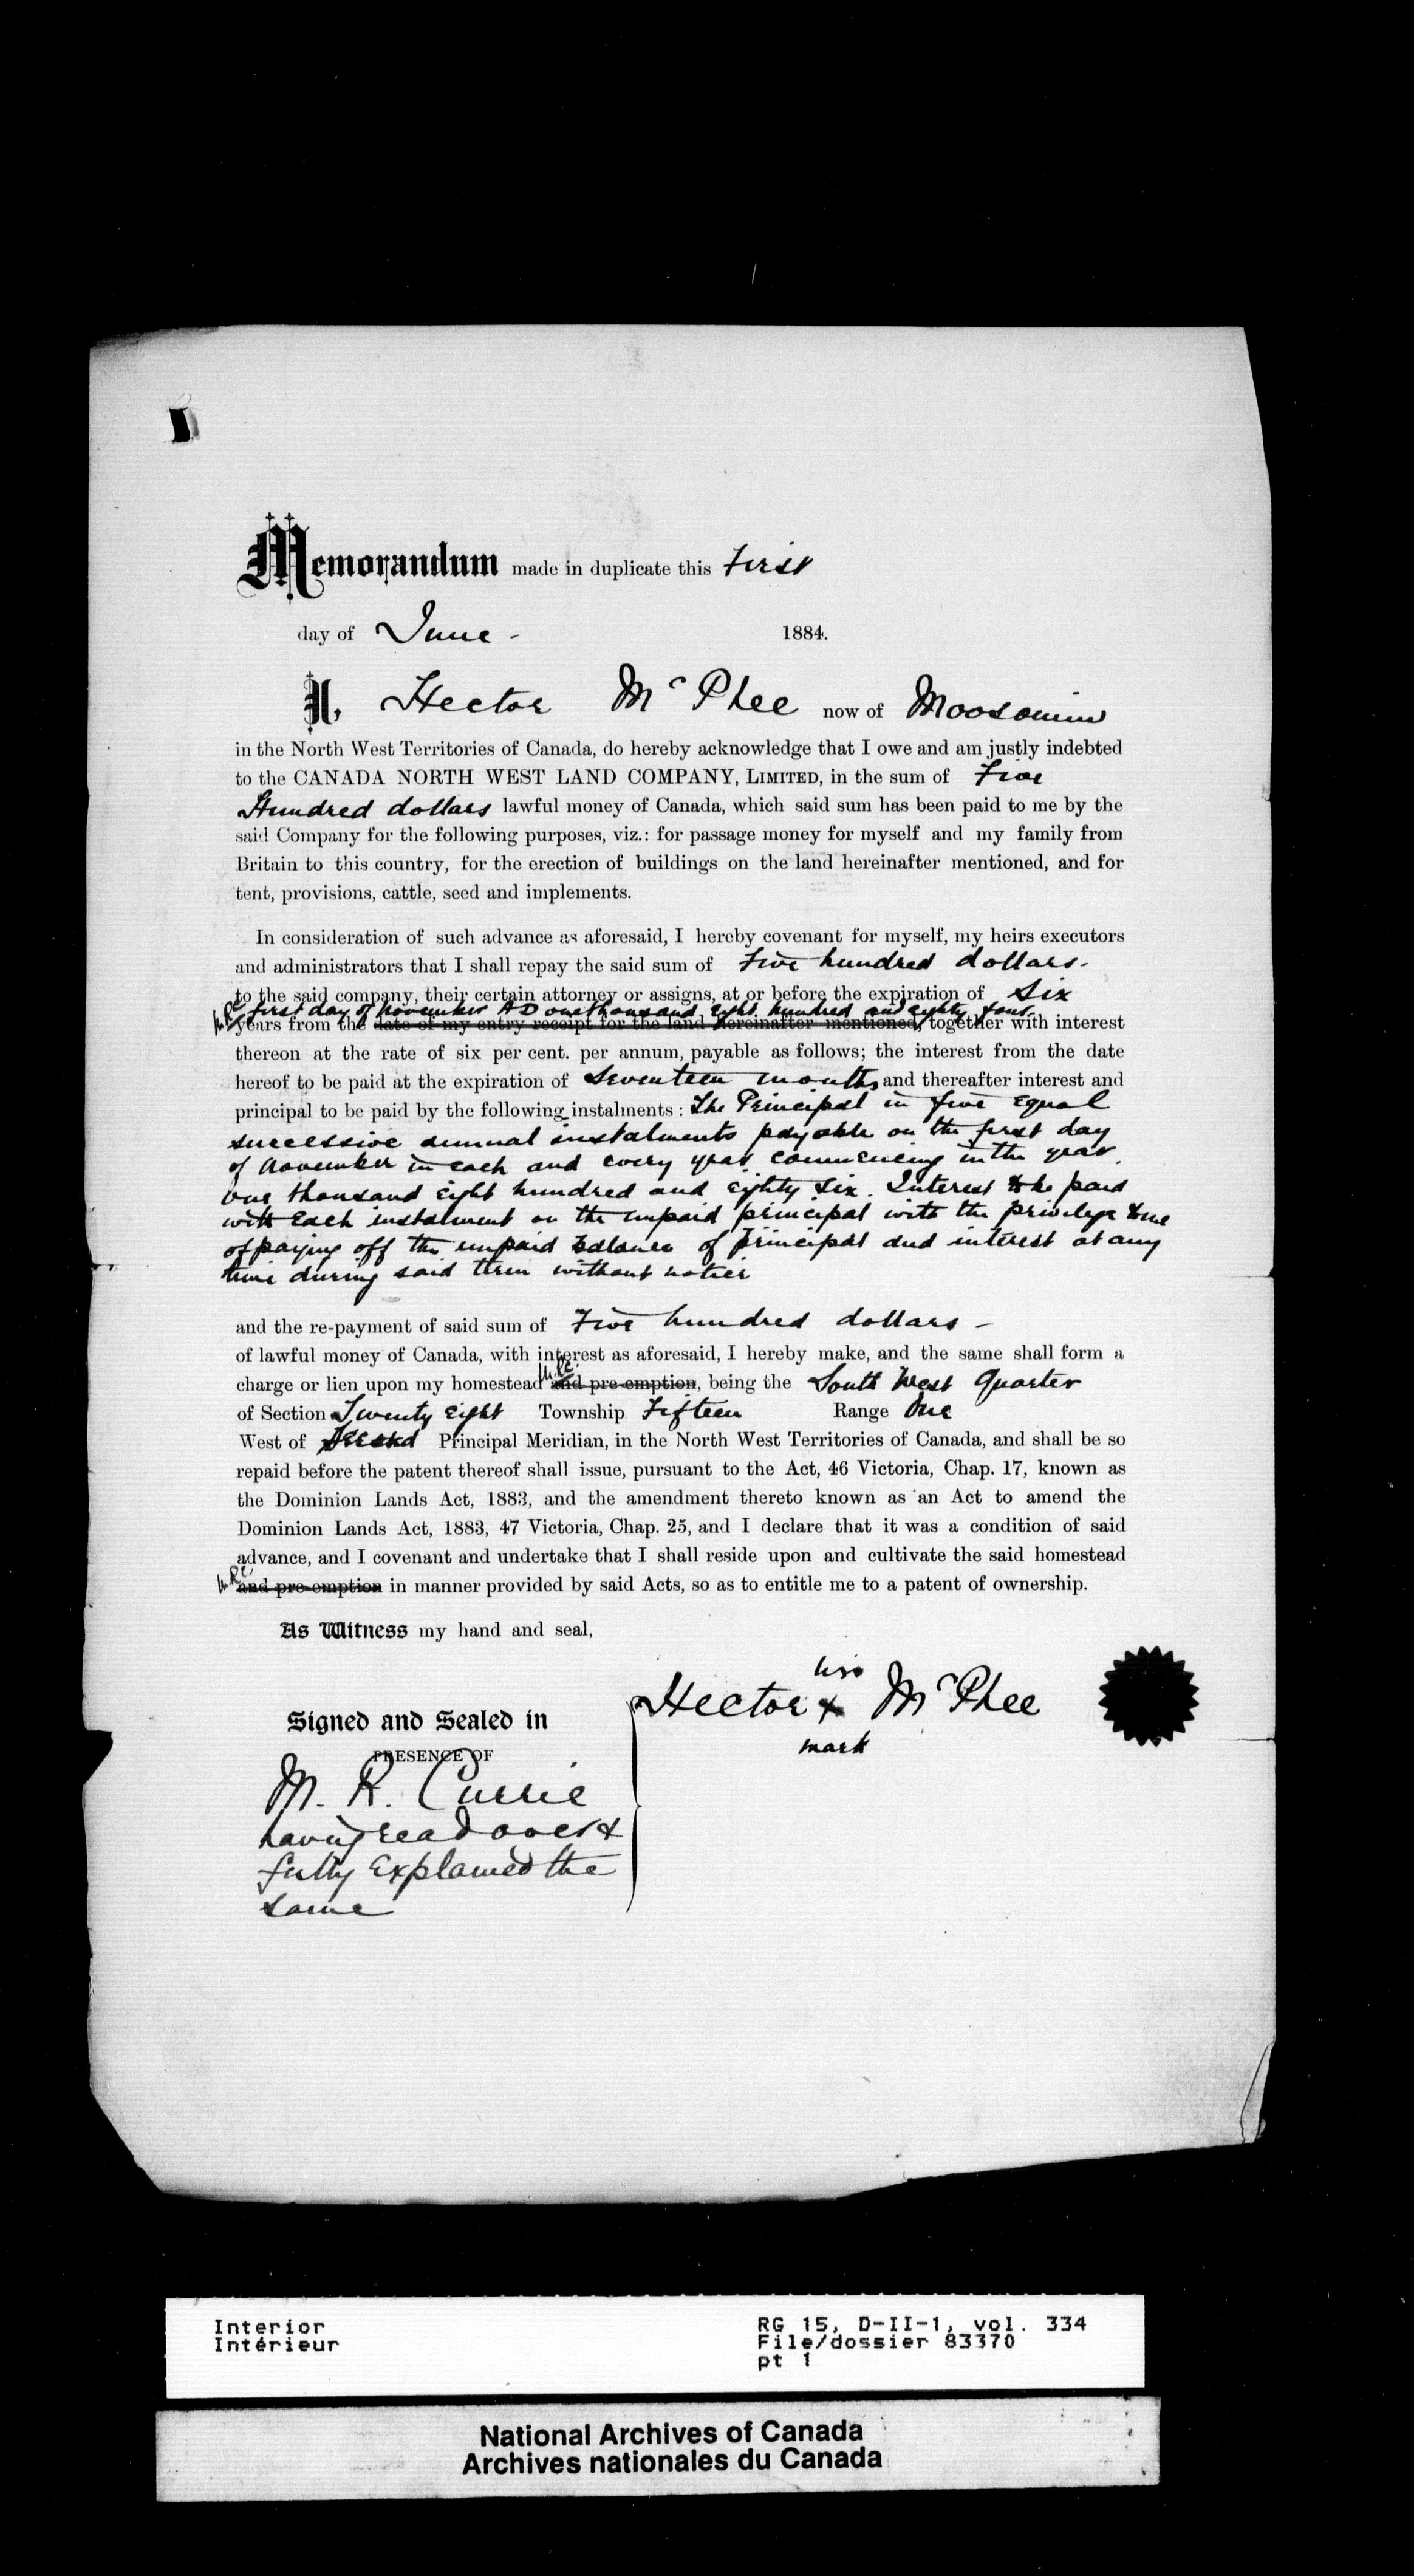 Memorandum made in duplicate this First
day of June - 1884.
I, Hector McPhee now of Moosomin
in the North West Territories of Canada, do hereby acknowledge that I owe and am justly indebted
to the CANADA NORTH WEST LAND COMPANY, LIMITED, in the sum of Five
Hundred dollars lawful money of Canada, which said sum has been paid to me by the
said Company for the following purposes, viz.: for passage money for myself and my family from
Britain to this country, for the erection of buildings on the land hereinafter mentioned, and for
tent, provisions, cattle, seed and implements.
In consideration of such advance as aforesaid, I hereby covenant for myself, my heirs executors
and administrators that I shall repay the said sum of Five hundred dollars.
to the said company, their certain attorney or assigns, at or before the expiration of Six
M.R.C. first day of November AD one thousand eight hundred and eighty four
years from the date of my entry receipt for the land hereinafter mentioned, together with interest
thereon at the rate of six per cent. per annum, payable as follows; the interest from the date
hereof to be paid at the expiration of Seventeen months and thereafter interest and
principal to be paid by the following instalments: The Principal in five equal
successive annual instalments payable on the first day
of November in each and every year commencing in the year
one thousand eight hundred and eighty six. Interest to be paid
with each instalment on the unpaid principal with the privilege to me
of paying off the unpaid balance of principal and interest at any
time during said term without notice
and the re-payment of said sum of Five hundred dollars -
of lawful money of Canada, with interest as aforesaid, I hereby make, and the same shall form a
M.R.C.
charge or lien upon my homestead and pre-emption, being the South West Quarter
of Section Twenty Eight Township Fifteen Range One
West of Second Principal Meridian, in the North West Territories of Canada, and shall be so
repaid before the patent thereof shall issue, pursuant to the Act, 46 Victoria, Chap. 17, known as
the Dominion Lands Act, 1883, and the amendment thereto known as an Act to amend the
Dominion Lands Act, 1883, 47 Victoria, Chap. 25, and I declare that it was a condition of said
advance, and I covenant and undertake that I shall reside upon and cultivate the said homestead
M.R.C.
and pre-emption in manner provided by said Acts, so as to entitle me to a patent of ownership.
As Witness my hand and seal,
his
Hector x McPhee
mark
Signed and Sealed in
PRESENCE OF
M. R. Currie
having read over &
fully Explained the
same
Interior
Intérieur
RG 15, D-II-1, vol. 334
File/dossier 83370
pt 1
National Archives of Canada
Archives nationales du Canada